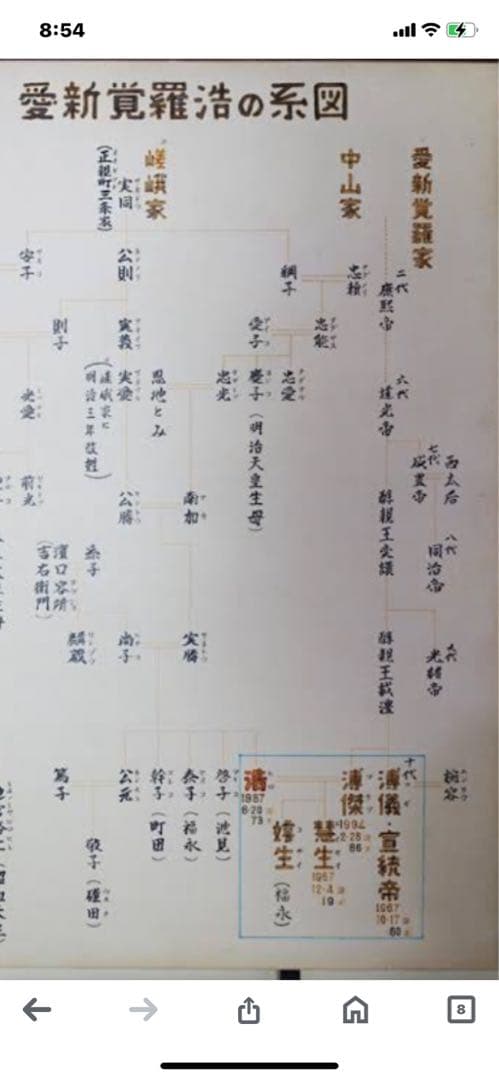 8:54
愛新覚羅浩の系図
愛新覚羅家
二代
康熙帝
六代
道光帝
七代
咸豊帝
西太后
八代
同治帝
醇親王奕譞
九代
光緒帝
醇親王載灃
十代
溥儀・宣統帝
1967
10-17
60
婉容
溥傑
1994
2-28
86
浩
1987
6-20
73
慧生
1957
12-4
19
嫮生
(福永)
中山家
忠頼
綱子
忠能
愛子
忠愛
慶子(明治天皇生母)
忠光
嵯峨家
実同
(正親町三条家)
公則
安子
実義
則子
実愛
(嵯峨家と
明治三年改姓)
恩地とみ
南加
公勝
光愛
前光
濱口容所
(吉右衛門)
実勝
尚子
啓子(池見)
泰子(福永)
幹子(町田)
公元
篤子
敬子(種田)
8